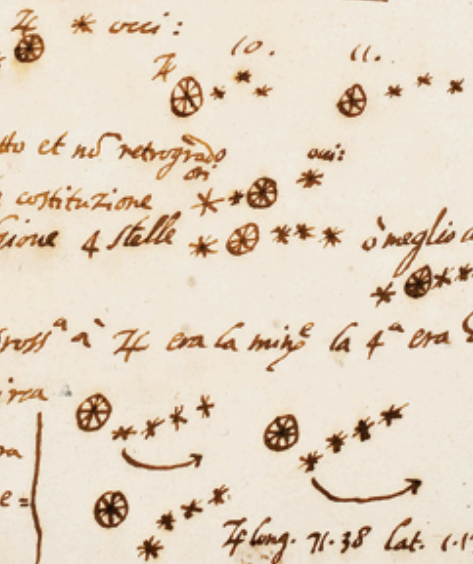 ♃ * occi:
♃ 10. 11.
tto et no͂ retrogrado
ori occi:
costituzione
gione 4 stelle ò meglio
à ♃ era la min^e la 4^a era
irca
♃ long. 71.38 lat. 1.1